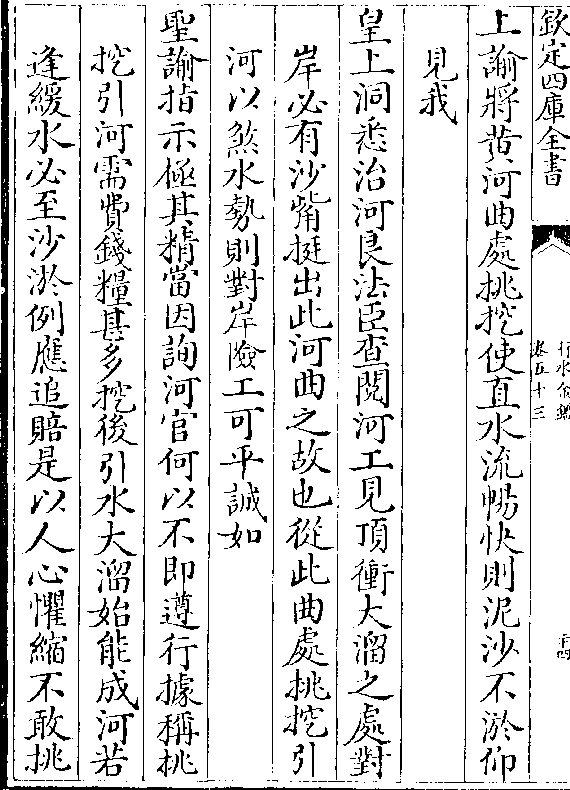 欽定四庫全書
行水金鑑
卷五十三
二十四
上諭將黃河曲處挑挖使直水流暢快則泥沙不淤仰
見我
皇上洞悉治河良法臣查閱河工見頂衝大溜之處對
岸必有沙觜挺出此河曲之故也從此曲處挑挖引
河以煞水勢則對岸險工可平誠如
聖諭指示極其精當因詢河官何以不即遵行據稱挑
挖引河需費錢糧甚多挖後引水大溜始能成河若
逢緩水必至沙淤例應追賠是以人心懼縮不敢挑